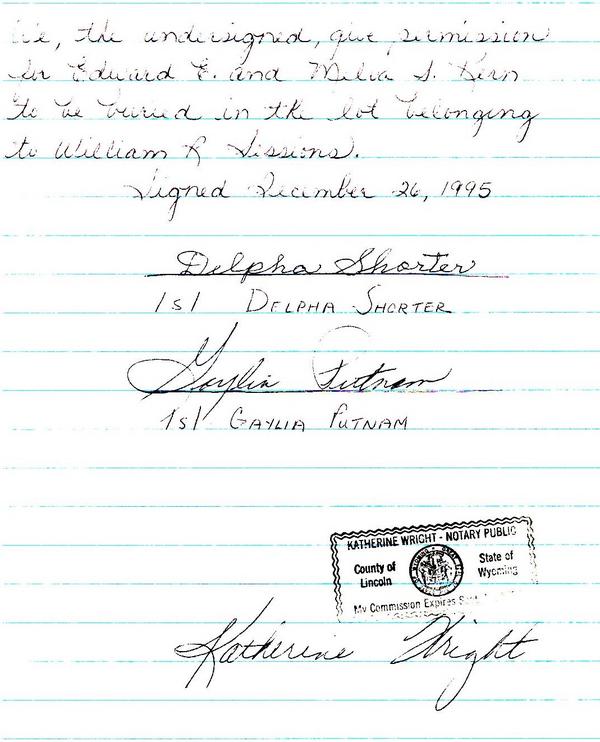 We, the undersigned, give permission
for Edward E. and Melva S. Kern
to be buried in the lot belonging
to William R Sessions.
Signed December 26, 1995
Delpha Shorter
/s/ DELPHA SHORTER
Gaylia Putnam
/s/ GAYLIA PUTNAM
KATHERINE WRIGHT - NOTARY PUBLIC
County of Lincoln
State of Wyoming
My Commission Expires
Katherine Wright